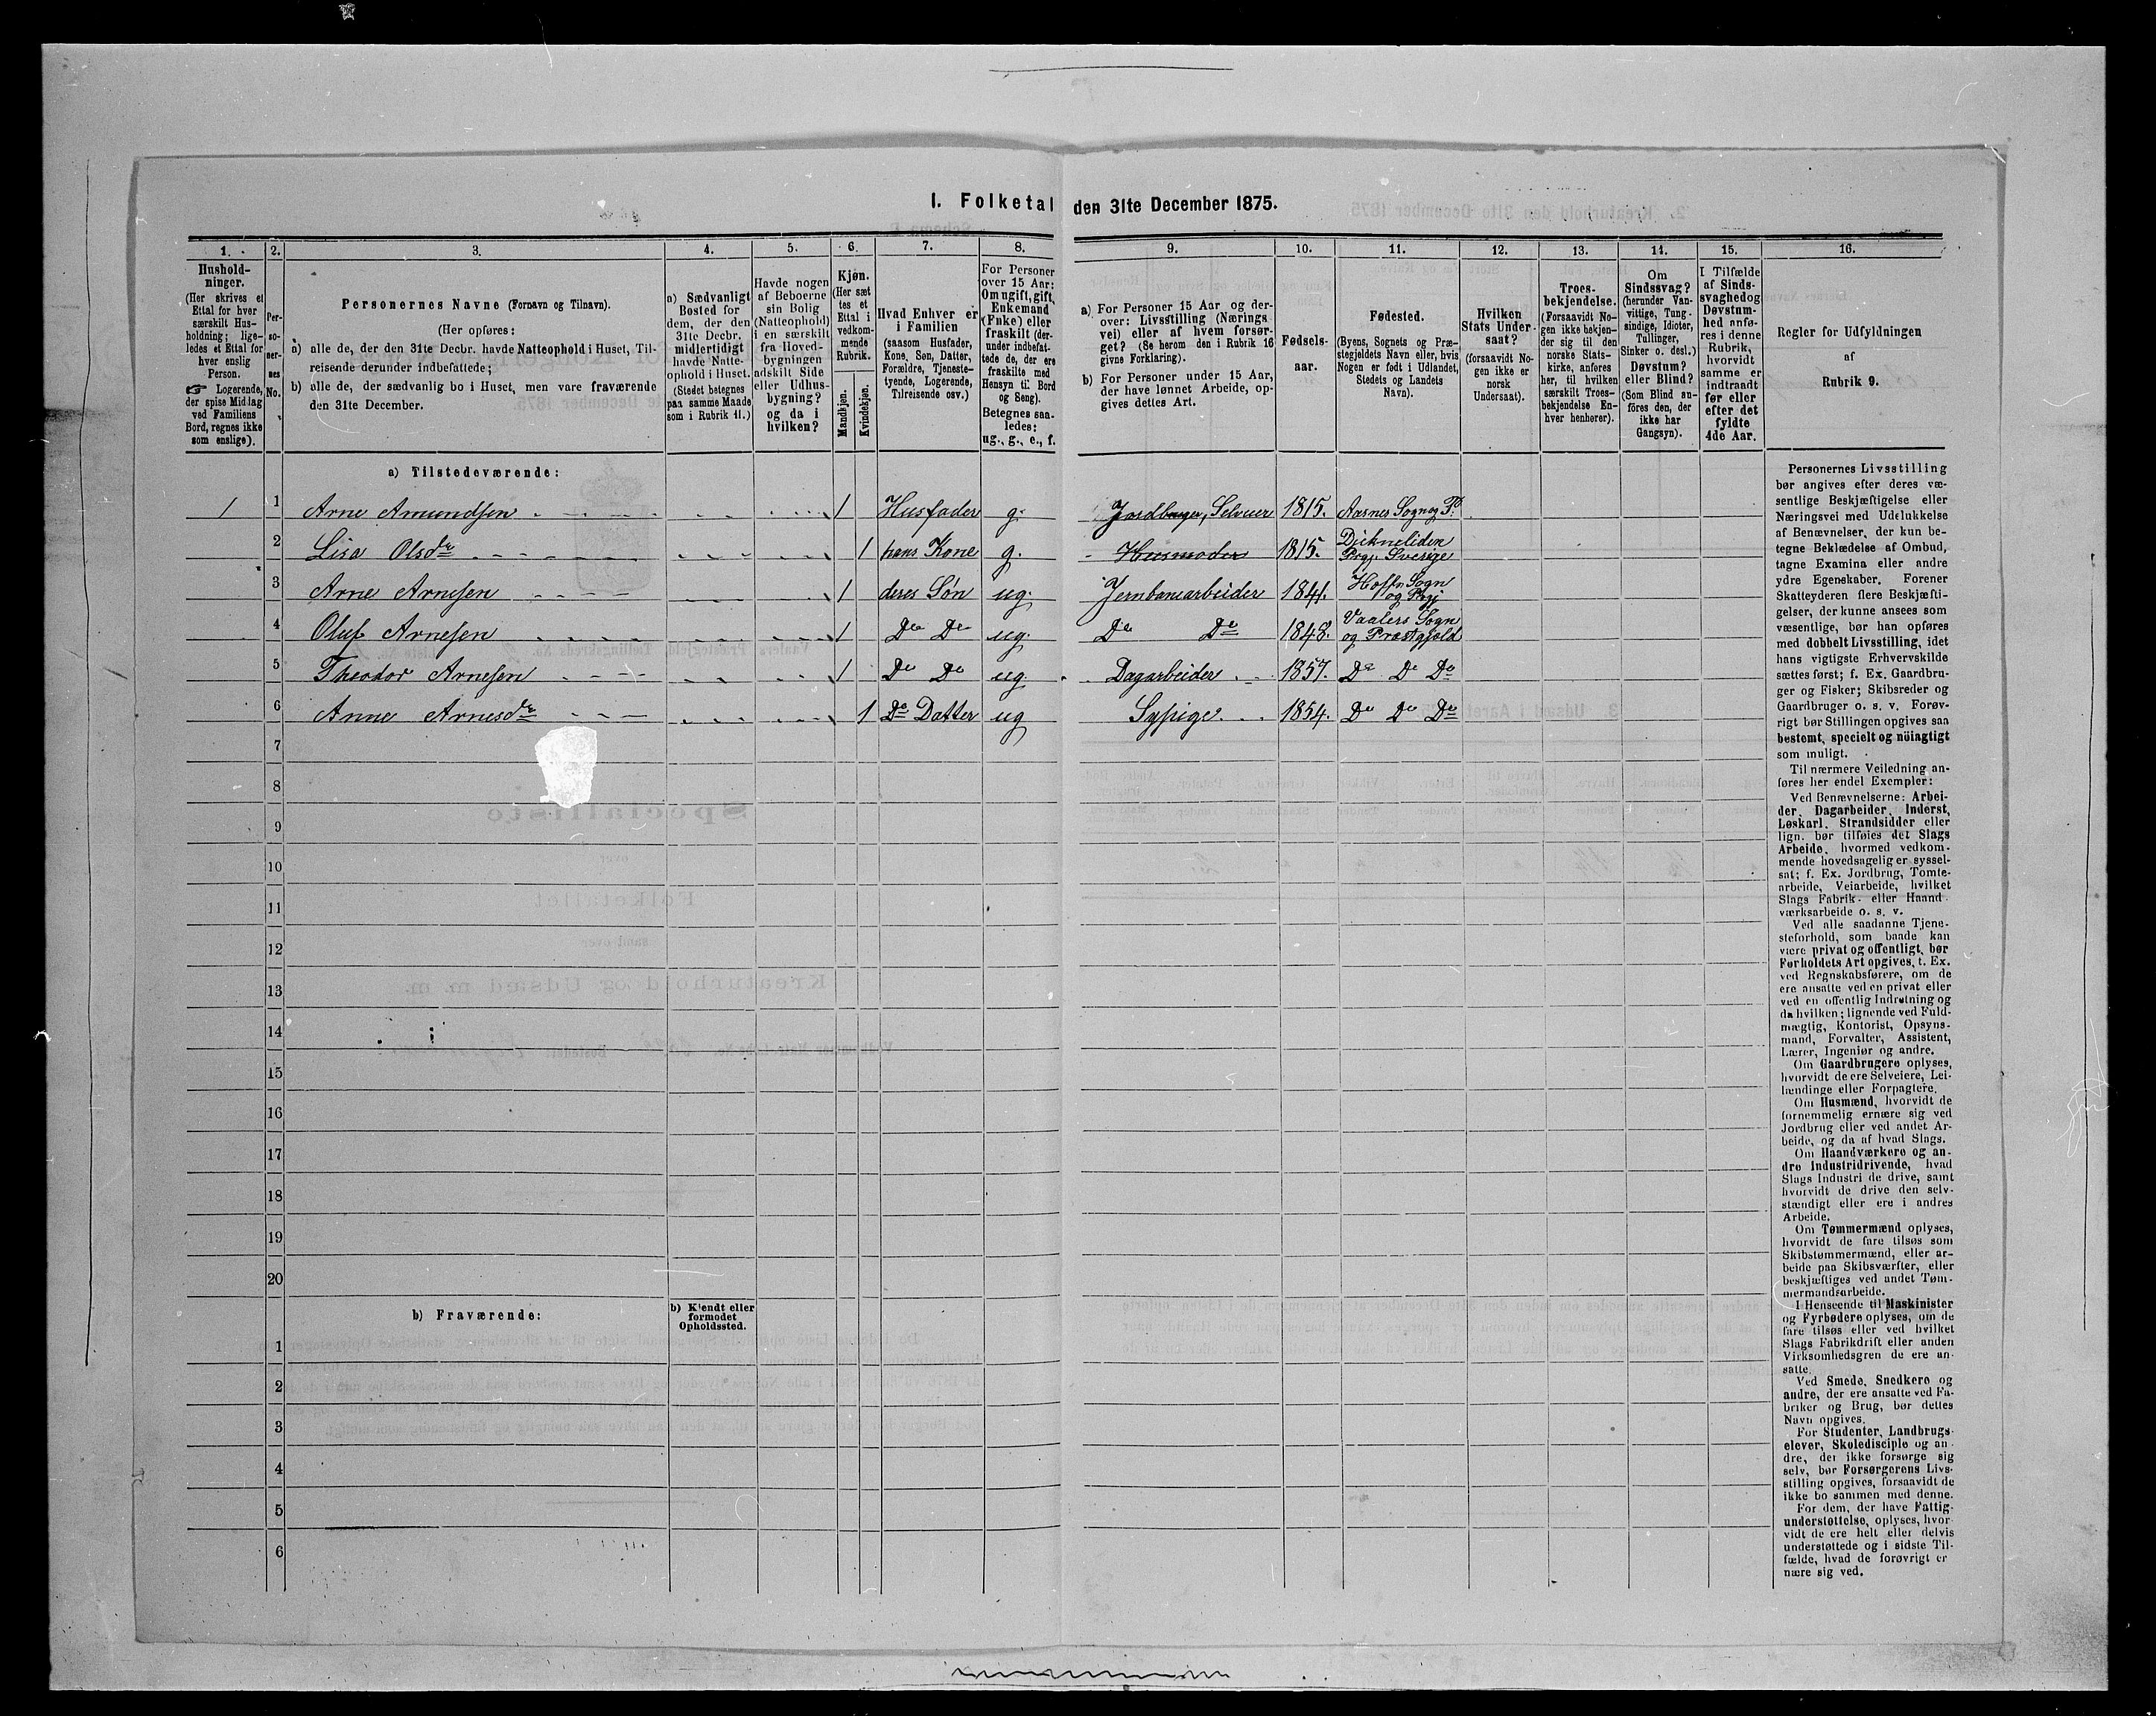 I. Folketal den 31te December 1875.
1. 2. 3. 4. 5. 6. 7. 8. 9. 10. 11. 12. 13. 14. 15. 16.
Hushold-
ninger.
(Her skrives et
Ettal for hver
særskilt Hus-
holdning; lige-
ledes et Ettal for
hver enslig
Person.
☞ Logerende,
der spise Middag
ved Familiens
Bord, regnes ikke
som enslige).
Per-
so-
ner-
nes
No.
Personernes Navne (Fornavn og Tilnavn).
(Her opføres:
a) alle de, der den 31te Decbr. havde Natteophold i Huset, Til-
reisende derunder indbefattede;
b) alle de, der sædvanlig bo i Huset, men vare fraværende
den 31te December.
a) Sædvanligt
Bosted for
dem, der den
31te Decbr.
midlertidigt
havde Natte-
ophold i Huset.
(Stedet betegnes
paa samme Maade
som i Rubrik 11.)
Havde nogen
af Beboerne
sin Bolig
(Natteophold)
i en særskilt
fra Hoved-
bygningen
adskilt Side
eller Udhus-
bygning?
og da i
hvilken?
Kjøn.
(Her sæt
tes et
Ettal i
vedkom-
mende
Rubrik.
Mandkjøn.
Kvindekjøn.
Hvad Enhver er
i Familien
(saasom Husfader,
Kone, Søn, Datter,
Forældre, Tjeneste-
tyende, Logerende,
Tilreisende osv.)
For Personer
over 15 Aar:
Om ugift, gift,
Enkemand
(Enke) eller
fraskilt (der-
under indbefat-
tede de, der ere
fraskilte med
Hensyn til Bord
og Seng).
Betegnes saa-
ledes:
ug., g., e., f.
a) For Personer 15 Aar og der-
over: Livsstilling (Nærings
vei) eller af hvem forsør-
get? (Se herom den i Rubrik 16
givne Forklaring).
b) For Personer under 15 Aar,
der have lønnet Arbeide, op-
gives dettes Art.
Fødsels-
aar.
Fødested.
(Byens, Sognets og Præ-
stegjeldets Navn eller, hvis
Nogen er født i Udlandet,
Stedets og Landets
Navn).
Hvilken
Stats Under-
saat?
(forsaavidt No-
gen ikke er
norsk
Undersaat).
Troes-
bekjendelse.
(Forsaavidt No-
gen ikke bekjen-
der sig til den
norske Stats-
kirke, anføres
her, til hvilken
særskilt Troes-
bekjendelse En-
hver henhører).
Om
Sindssvag?
(herunder Van-
vittige, Tung-
sindige, Idioter,
Tullinger,
Sinker o. desl.)
Døvstum?
eller Blind?
(Som Blind an-
føres den, der
ikke har
Gangsyn).
I Tilfælde
af Sinds-
svaghed og
Døvstum-
hed anfø-
res i denne
Rubrik,
hvorvidt
samme er
indtraadt
før eller
efter det
fyldte
4de Aar.
Regler for Udfyldningen
af
Rubrik 9.
a) Tilstedeværende:
1 1 Arne Amundsen 1 Husfader g. Jordbruger, Selveier 1815. Aasnes Sogn og P.
2 Lisa Olsdr 1 hans Kone g. Husmoder 1815. Dickneliden Prgj. Sverige
3 Arne Arnesen 1 deres Søn ug. Jernbanearbeider 1841. Hoffs Sogn og Prgj
4 Oluf Arnesen 1 Do Do ug. Do Do 1848. Vaalers Sogn og Præstgjeld
5 Theodor Arnesen 1 Do Do ug. Dagarbeider 1857. Do Do Do
6 Anne Arnesdr 1 Do Datter ug Sypige 1854. Do Do Do
7
8
9
10
11
12
13
14
15
16
17
18
19
20
b) Fraværende:
b) Kjendt eller
formodet
Opholdssted.
1
2
3
4
5
6
Personernes Livsstilling
bør angives efter deres væ-
sentlige Beskjæftigelse eller
Næringsvei med Udelukkelse
af Benævnelser, der kun be-
tegne Beklædelse af Ombud,
tagne Examina eller andre
ydre Egenskaber. Forener
Skatteyderen flere Beskjæfti-
gelser, der kunne ansees som
væsentlige, bør han opføres
med dobbelt Livsstilling, idet
hans vigtigste Erhvervskilde
sættes først; f. Ex. Gaardbru-
ger og Fisker; Skibsreder og
Gaardbruger o. s. v. Forøv-
rigt bør Stillingen opgives saa
bestemt, specielt og nöiagtigt
som muligt.
Til nærmere Veiledning an-
føres her endel Exempler:
Ved Benævnelserne: Arbei-
der, Dagarbeider, Inderst,
Løskarl, Strandsidder eller
lign. bør tilføies det Slags
Arbeide, hvormed vedkom-
mende hovedsagelig er syssel-
sat; f. Ex. Jordbrug, Tomte-
arbeide, Veiarbeide, hvilket
Slags Fabrik- eller Haand-
værksarbeide o. s. v.
Ved alle saadanne Tjene-
steforhold, som baade kan
være privat og offentligt, bør
Forholdets Art opgives, t. Ex.
ved Regnskabsførere, om de
ere ansatte ved en privat eller
ved en offentlig Indretning og
da hvilken; lignende ved Fuld-
mægtig, Kontorist, Opsyns-
mand, Forvalter, Assistent,
Lærer, Ingeniør og andre.
Om Gaardbrugere oplyses,
hvorvidt de ere Selveiere, Lei-
lændinge eller Forpagtere.
Om Husmænd, hvorvidt de
fornemmelig ernære sig ved
Jordbrug eller ved andet Ar-
beide, og da af hvad Slags.
Om Haandværkere og an-
dre Industridrivende, hvad
Slags Industri de drive, samt
hvorvidt de drive den selv-
stændigt eller ere i andres
Arbeide.
Om Tømmermænd oplyses,
hvorvidt de fare tilsøs som
Skibstømmermænd, eller ar-
beide paa Skibsværfter, eller
beskjæftiges ved andet Tøm-
mermandsarbeide.
I Henseende til Maskinister
og Fyrbødere oplyses, om de
fare tilsøs eller ved hvilket
Slags Fabrikdrift eller anden
Virksomhedsgren de ere an-
satte.
Ved Smede, Snedkere og
andre, der ere ansatte ved Fa-
briker og Brug, bør dettes
Navn opgives.
For Studenter, Landbrugs-
elever, Skoledisciple og an-
dre, der ikke forsørge sig
selv, bør Forsørgerens Livs-
stilling opgives, forsaavidt de
ikke bo sammen med denne.
For dem, der have Fattig-
understøttelse, oplyses, hvor-
vidt de ere helt eller delvis
understøttede og i sidste Til-
fælde, hvad de forøvrigt er
nære sig ved.